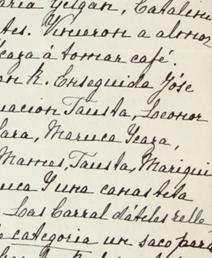 aria Yelgan, Catalin
tes. Vinieron a almor
caza á tomar café.
on K. Enseguida Jóse
uacion Tausta, Leonor
lara, Maruca Ycaza,
Mames, Tausta, Mariqui
uca Y una canastita
Las Carral dátiles relle
categoria un saco para